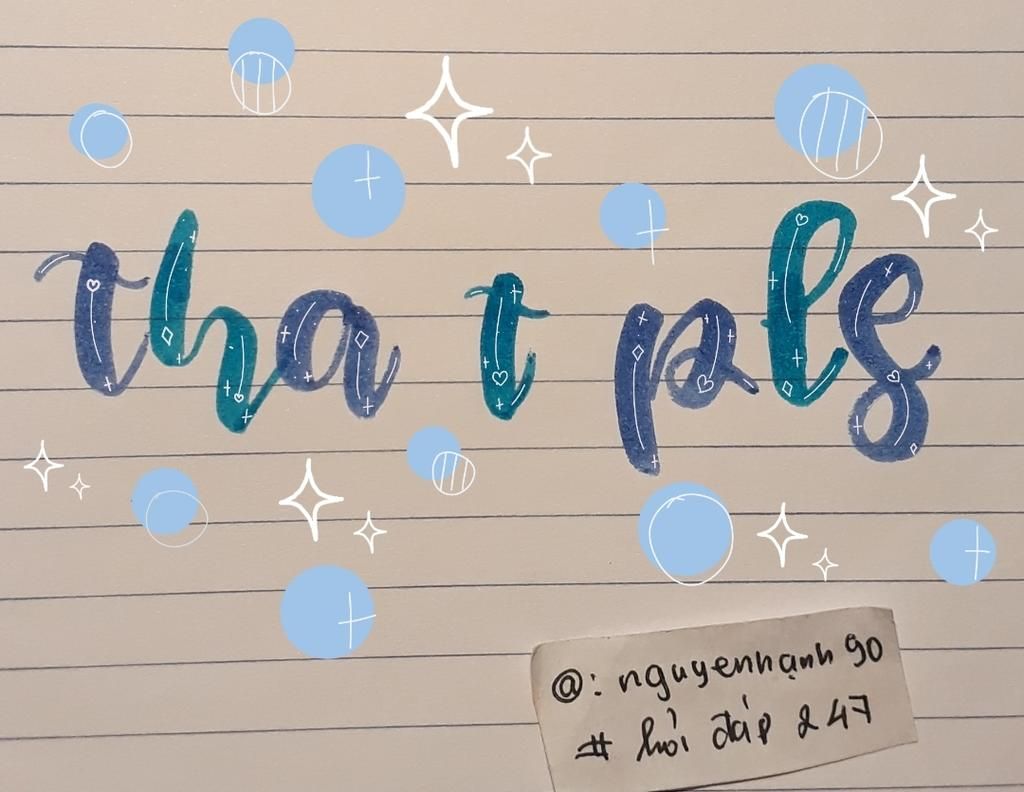 tha t pls
@: nguyenhạnh 90
# hỏi đáp 247